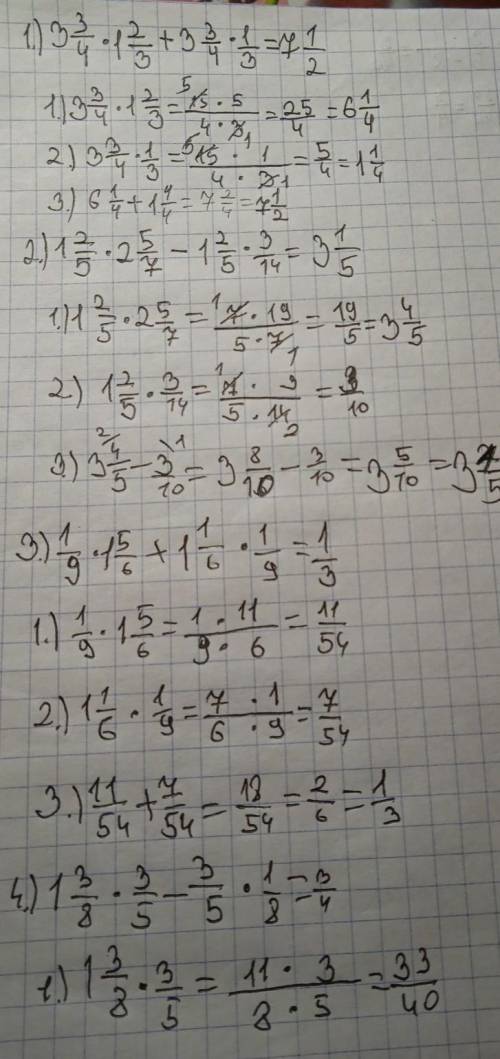 1.) 3 3/4 · 1 2/3 + 3 3/4 · 1/3 = 7 1/2
1.) 3 3/4 · 1 2/3 = 15 · 5 / 4 · 3 = 25/4 = 6 1/4
2.) 3 3/4 · 1/3 = 15 · 1 / 4 · 3 = 5/4 = 1 1/4
3.) 6 1/4 + 1 1/4 = 7 2/4 = 7 1/2
2.) 1 2/5 · 2 5/7 - 1 2/5 · 3/14 = 3 1/5
1.) 1 2/5 · 2 5/7 = 7 · 19 / 5 · 7 = 19/5 = 3 4/5
2.) 1 2/5 · 3/14 = 7 · 3 / 5 · 14 = 3/10
3.) 3 4/5 - 3/10 = 3 8/10 - 3/10 = 3 5/10 = 3 1/5
3.) 1/9 · 1 5/6 + 1 1/6 · 1/9 = 1/3
1.) 1/9 · 1 5/6 = 1 · 11 / 9 · 6 = 11/54
2.) 1 1/6 · 1/9 = 7 · 1 / 6 · 9 = 7/54
3.) 11/54 + 7/54 = 18/54 = 2/6 = 1/3
4.) 1 3/8 · 3/5 - 3/5 · 1/8 = 3/4
1.) 1 3/8 · 3/5 = 11 · 3 / 8 · 5 = 33/40